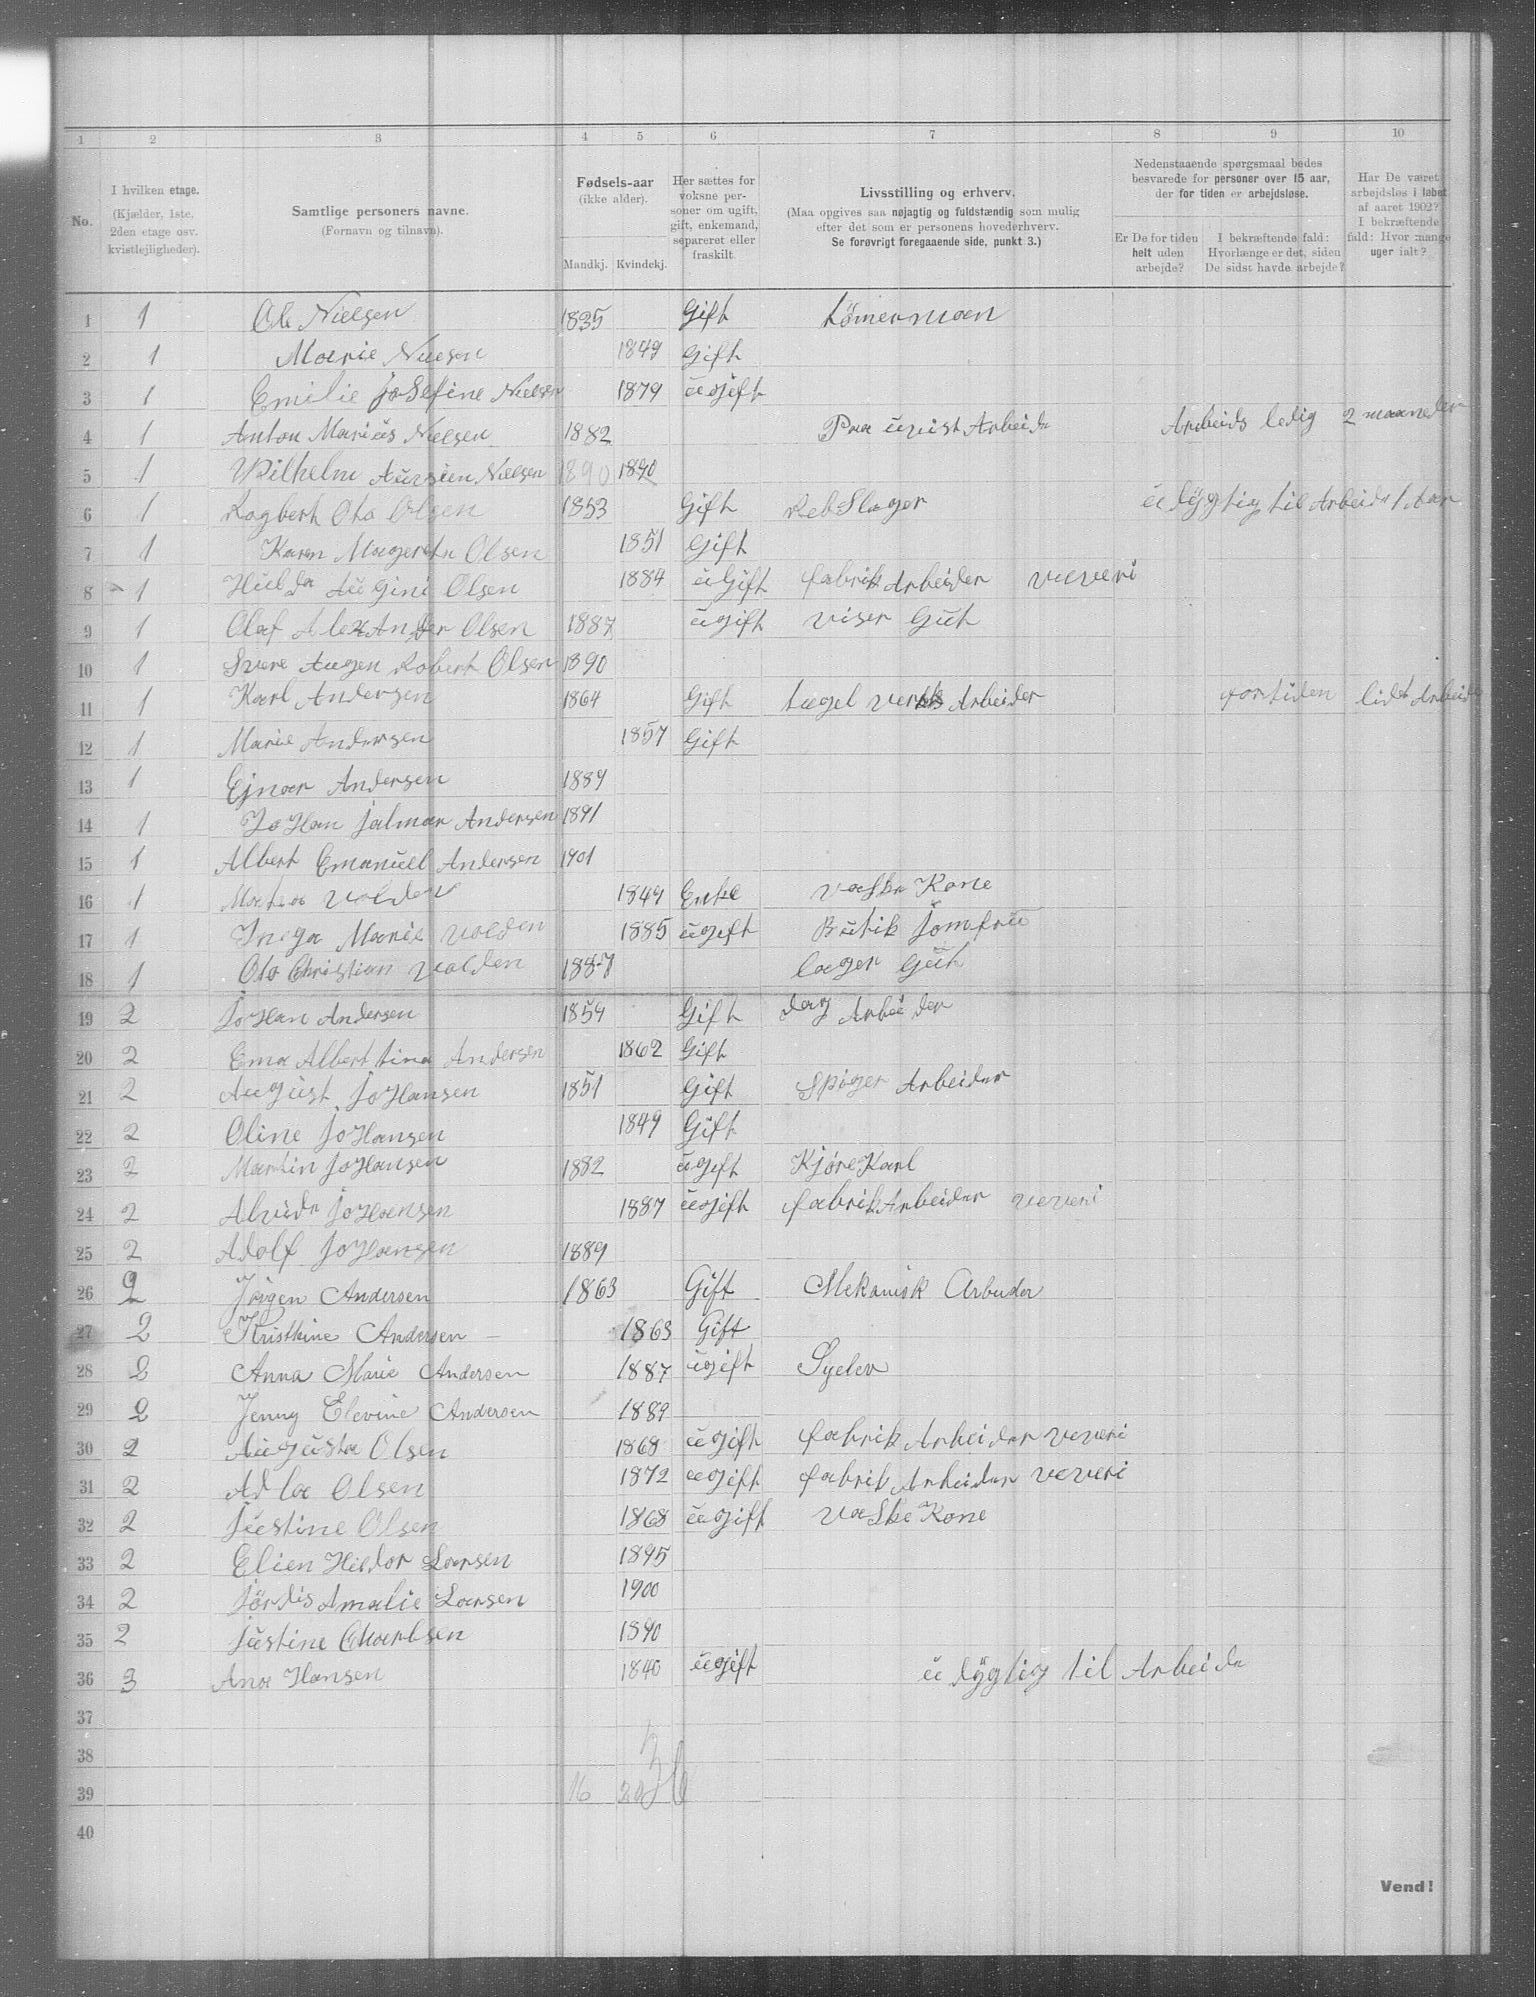 1 2 3 4 5 6 7 8 9 10
No.
I hvilken etage. (Kjælder, 1ste, 2den etage osv. kvistlejligheder).
Samtlige personers navne. (Fornavn og tilnavn).
Fødsels-aar (ikke alder).
Mandkj. Kvindekj.
Her sættes for voksne personer om ugift, gift, enkemand, separeret eller fraskilt.
Livsstilling og erhverv. (Maa opgives saa nøjagtig og fuldstændig som mulig efter det som er personens hovederhverv. Se forøvrigt foregaaende side, punkt 3.)
Nedenstaaende spørgsmaal bedes besvarede for personer over 15 aar, der for tiden er arbejdsløse.
Er De for tiden helt uden arbejde?
I bekræftende fald: Hvorlænge er det, siden De sidst havde arbejde?
Har De været arbejdsløs i løbet af aaret 1902? I bekræftende fald: Hvor mange uger ialt?
1 1 Ole Nielsen 1835 Gift tömermaen
2 1 Maerie Nielsen 1849 Gift
3 1 Emilie joSefine Nielsen 1879 ügift
4 1 Anton Mariüs Nielsen 1882 Paa üvist Arbeide Arbeids ledig 2 maaneder
5 1 Wilhelm Nielsen 1890 1890
6 1 Ragbert Oto Olsen 1853 Gift RebSlager üdygtig til Arbeide 1 Aar
7 1 Karen Magerete Olsen 1851 Gift
8 1 Hilda Aügini Olsen 1884 üGift fabrik Arbeider veveri
9 1 Olaf AlexAnder Olsen 1887 ügift viser Güt
10 1 Svere Aügen Robert Olsen 1890
11 1 Karl Andersen 1864 Gift tægel verks Arbeider fortiden lidet Arbeide
12 1 Marie Andersen 1857 Gift
13 1 Ejnar Andersen 1889
14 1 JoHan jalmar Andersen 1891
15 1 Albert Emanüel Andersen 1901
16 1 Volden 1849 Enke vaSke Kone
17 1 Inega Marie Volden 1885 ügift Bütik jomfrü
18 1 Oto Christian Volden 1887 lager Güt
19 2 joHan Andersen 1859 Gift dag Arbeider
20 2 Ema Alberttina Andersen 1862 Gift
21 2 Aügüst joHansen 1851 Gift Spiger Arbeider
22 2 Oline joHansen 1849 Gift
23 2 Martin joHansen 1882 ügift KjøreKarl
24 2 Alvide joHansen 1887 ügift fabrikArbeider veveri
25 2 Adolf joHansen 1889
26 2 Jörgen Andersen 1863 Gift Mekanisk Arbeider
27 2 Kristhine Andersen – 1863 Gift
28 2 Anna Marie Andersen 1887 ügift Syelev
29 2 Jenny Elevine Andersen 1889
30 2 Aügüsta Olsen 1868 ügift fabrik Arbeider veveri
31 2 Adla Olsen 1872 ügift fabrik Arbeider veveri
32 2 jüstine Olsen 1868 ügift vaSke Kone
33 2 Elien Heldor Larsen 1895
34 2 jördis Amalie Larsen 1900
35 2 jüstine Charlsen 1890
36 3 Ana Hansen 1840 ügift üdygtig til Arbeide
37
38
39 16 20 36
40
Vend!